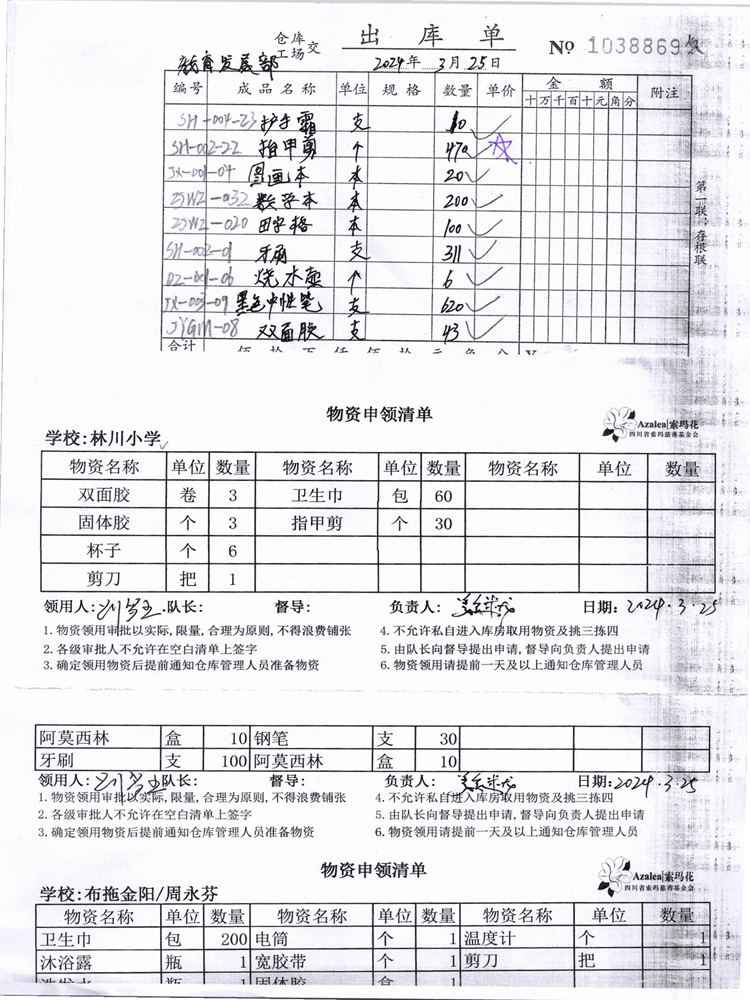 仓库
工场 交 出库单 № 1038869
教育发展部 2024年3月25日
编号 成品名称 单位 规格 数量 单价 金额 附注
十 万 千 百 十 元 角 分
SH-004-23 护手霜 支 10
SH-002-22 指甲剪 个 470
JX-001-04 图画本 本 20
ZJWZ-032 数学本 本 200
ZJWZ-020 田字格 本 100
SH-002-01 牙刷 支 311
DZ-001-06 烧水壶 个 6
JX-003-09 黑色中性笔 支 620
JYGM-08 双面胶 支 43
合计
第一联:存根联
物资申领清单
Azalea|索玛花
四川省索玛慈善基金会
学校:林川小学
物资名称 单位 数量 物资名称 单位 数量 物资名称 单位 数量
双面胶 卷 3 卫生巾 包 60
固体胶 个 3 指甲剪 个 30
杯子 个 6
剪刀 把 1
领用人: 队长: 督导: 负责人: 日期:2024.3.25
1.物资领用审批以实际,限量,合理为原则,不得浪费铺张 4.不允许私自进入库房取用物资及挑三拣四
2.各级审批人不允许在空白清单上签字 5.由队长向督导提出申请,督导向负责人提出申请
3.确定领用物资后提前通知仓库管理人员准备物资 6.物资领用请提前一天及以上通知仓库管理人员
阿莫西林 盒 10 钢笔 支 30
牙刷 支 100 阿莫西林 盒 10
领用人: 队长: 督导: 负责人: 日期:2024.3.25
1.物资领用审批以实际,限量,合理为原则,不得浪费铺张 4.不允许私自进入库房取用物资及挑三拣四
2.各级审批人不允许在空白清单上签字 5.由队长向督导提出申请,督导向负责人提出申请
3.确定领用物资后提前通知仓库管理人员准备物资 6.物资领用请提前一天及以上通知仓库管理人员
物资申领清单
Azalea|索玛花
四川省索玛慈善基金会
学校:布拖金阳/周永芬
物资名称 单位 数量 物资名称 单位 数量 物资名称 单位 数量
卫生巾 包 200 电筒 个 1 温度计 个 1
沐浴露 瓶 1 宽胶带 个 1 剪刀 把 1
洗发水 瓶 1 固体胶 个 1